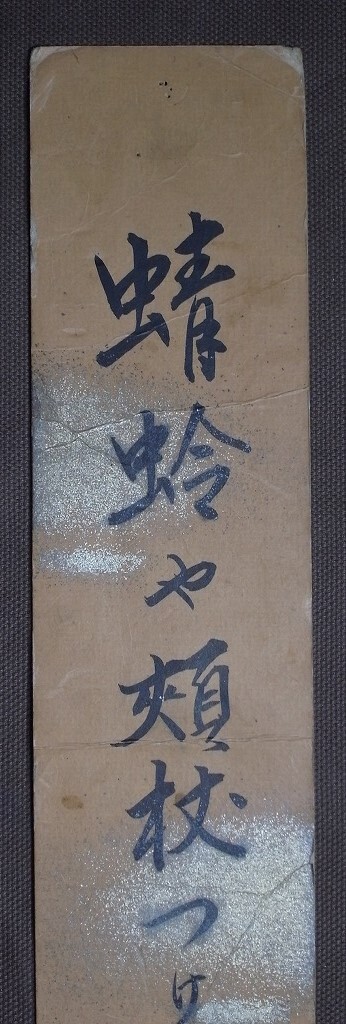 蜻蛉や頬杖つけ